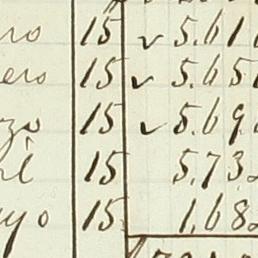 ro 15 ✓ 5.61
ero 15 ✓ 5.65
zo 15 ✓ 5.69
il 15 5.73
yo 15 1.68